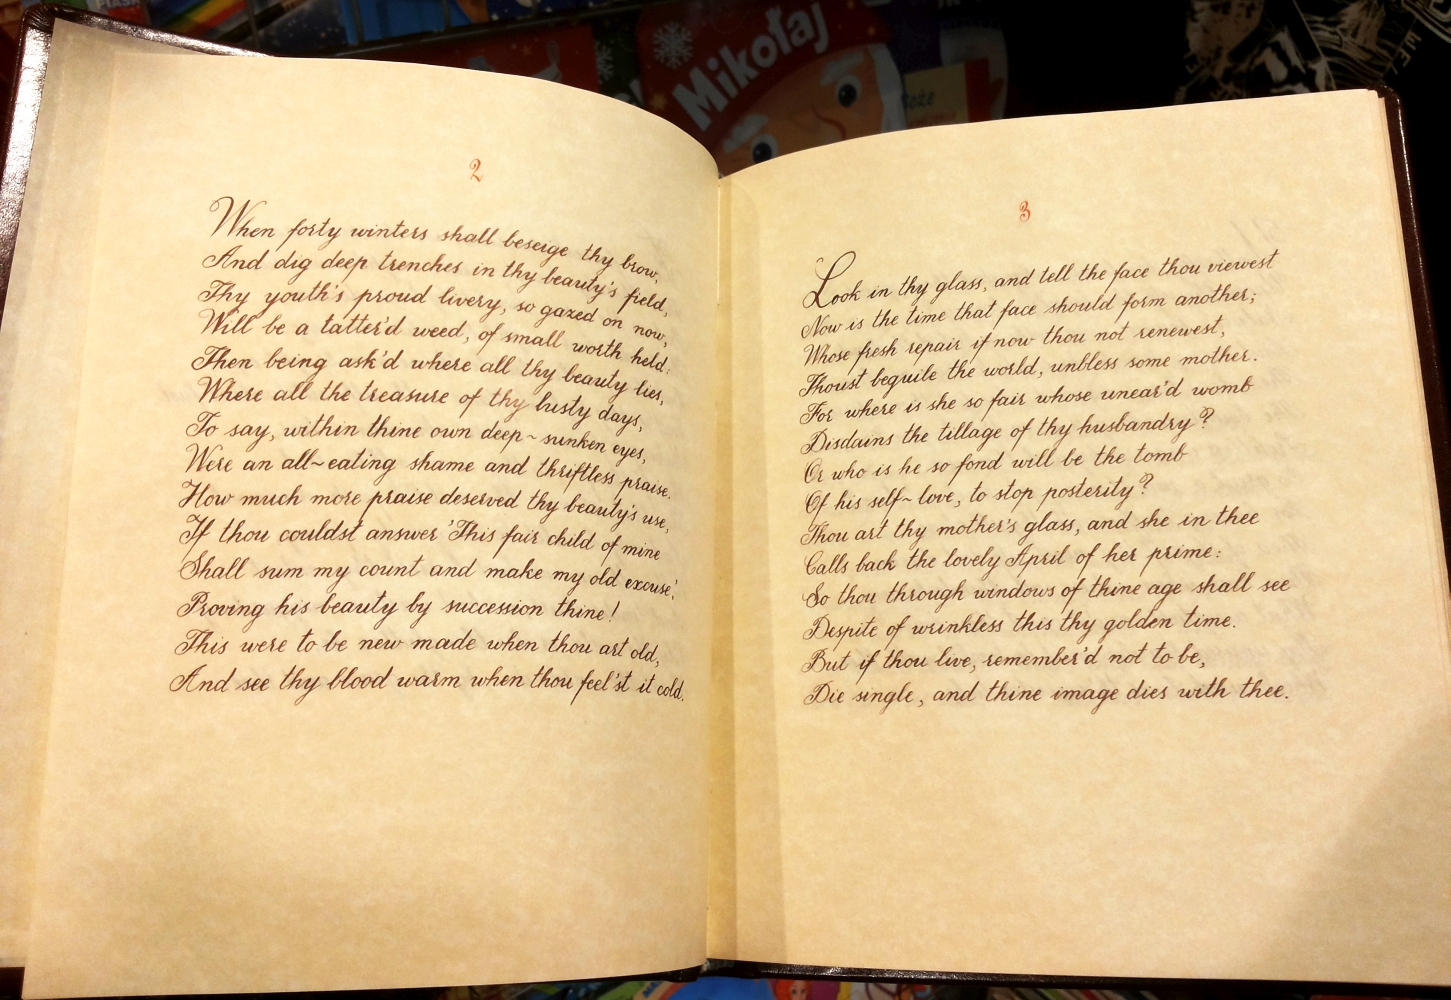 Mikołaj
2
When forty winters shall beseige thy brow,
And dig deep trenches in thy beauty's field,
Thy youth's proud livery, so gazed on now,
Will be a tatter'd weed, of small worth held:
Then being ask'd where all thy beauty lies,
Where all the treasure of thy lusty days,
To say, within thine own deep~sunken eyes,
Were an all~eating shame and thriftless praise.
How much more praise deserved thy beauty's use,
If thou couldst answer 'This fair child of mine
Shall sum my count and make my old excuse,'
Proving his beauty by succession thine!
This were to be new made when thou art old,
And see thy blood warm when thou feel'st it cold.
3
Look in thy glass, and tell the face thou viewest
Now is the time that face should form another;
Whose fresh repair if now thou not renewest,
Thoust beguile the world, unbless some mother.
For where is she so fair whose unear'd womb
Disdains the tillage of thy husbandry?
Or who is he so fond will be the tomb
Of his self~love, to stop posterity?
Thou art thy mother's glass, and she in thee
Calls back the lovely April of her prime:
So thou through windows of thine age shall see
Despite of wrinkless this thy golden time.
But if thou live, remember'd not to be,
Die single, and thine image dies with thee.